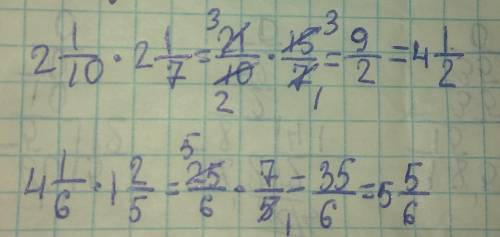 2 1/10 · 2 1/7 = 21/10 · 15/7 = 9/2 = 4 1/2
4 1/6 · 1 2/5 = 25/6 · 7/5 = 35/6 = 5 5/6